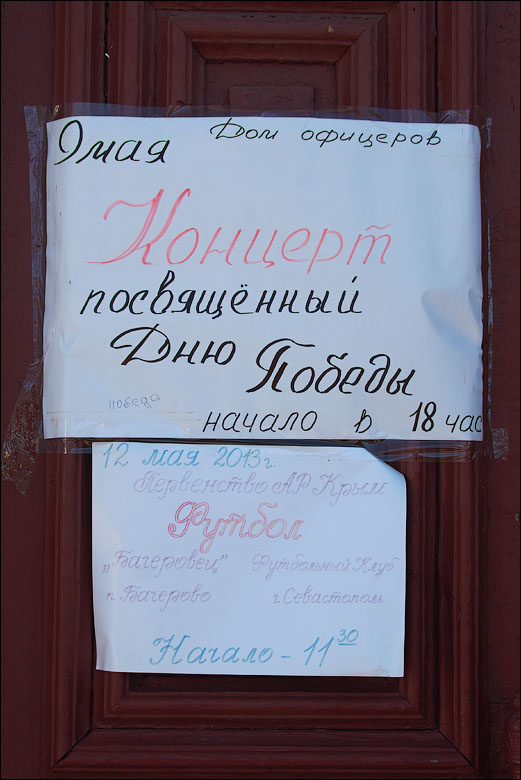 9 мая Дом офицеров
Концерт
посвящённый
Дню Победы
победа
начало в 18 час
12 мая 2013г.
Первенство АР Крым
Футбол
„Багеровец" Футбольный Клуб
п. Багерово г. Севастополь
Начало - 11 30